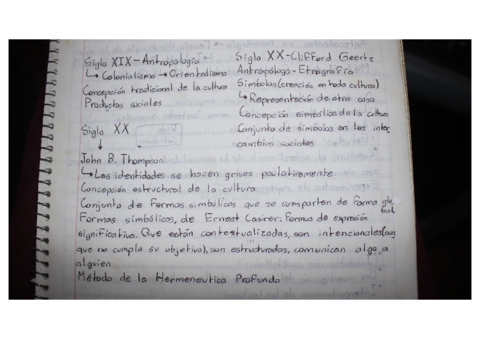 Siglo XIX - Antropología
↳ Colonialismo → Orientalismo
Concepción tradicional de la cultura
Productos sociales
Siglo XX - Clifford Geertz
Antropólogo - Etnografía
Símbolos (creación en toda cultura)
↳ Representación de otra cosa
Concepción simbólica de la cultura
Conjunto de símbolos en los inter
cambios sociales
Siglo XX
↓
John B. Thompson
↳ Las identidades se hacen grises paulatinamente
Concepción estructural de la cultura
Conjunto de formas simbólicas que se comparten de forma glo
bal
Formas simbólicas, de Ernest Casirer: Forma de expresión
significativa. Que están contextualizadas, son intencionales (aun
que no cumpla su objetivo), son estructuradas, comunican algo a
alguien
Método de la Hermeneutica Profunda